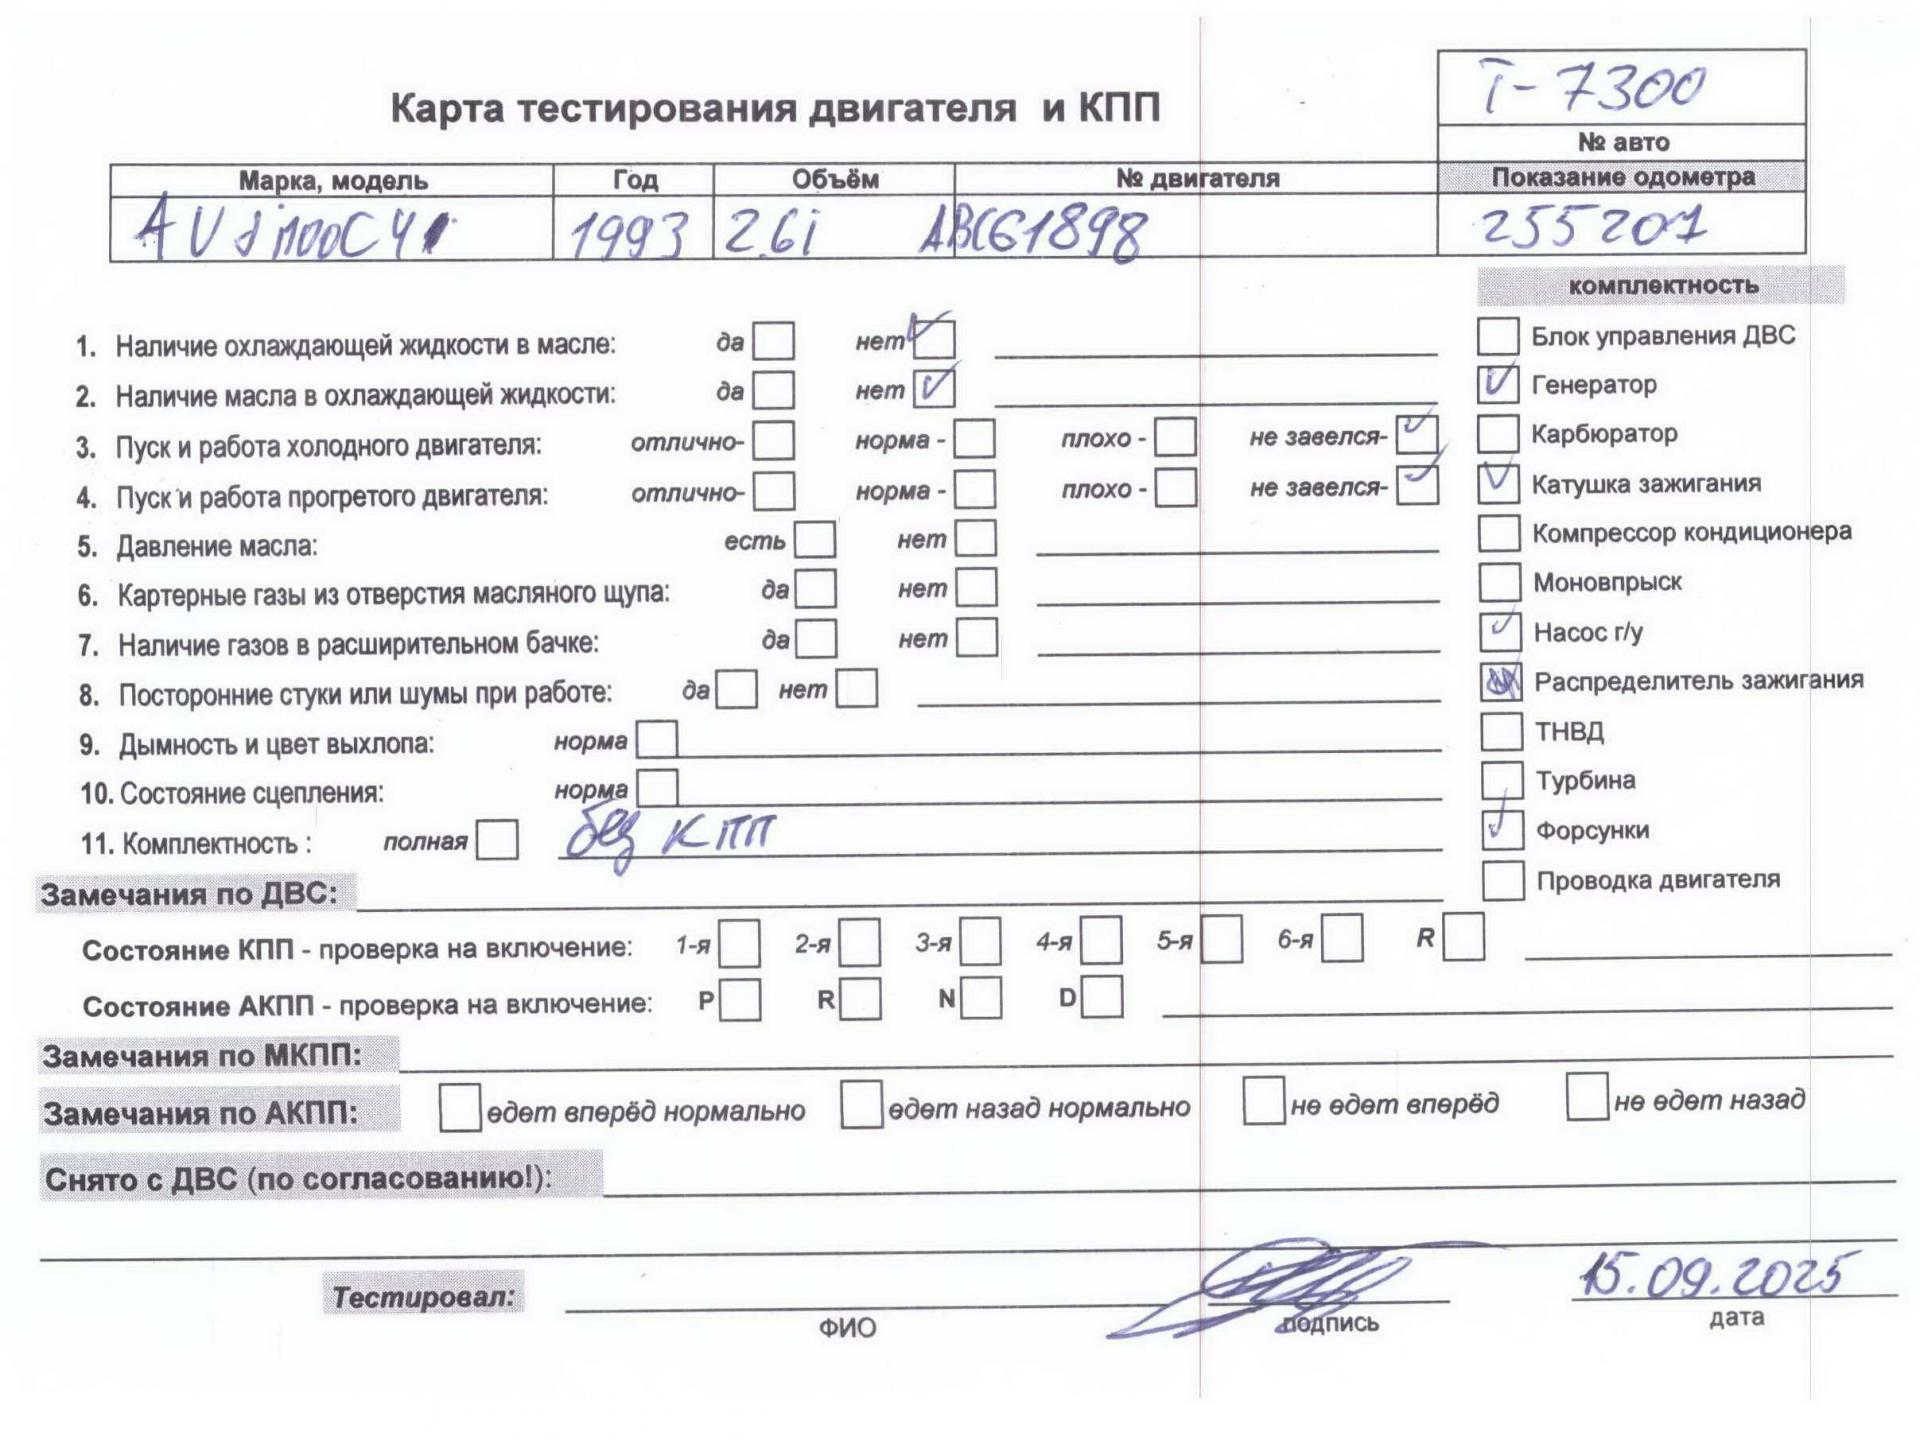 Т-7300
Карта тестирования двигателя и КПП
№ авто
Марка, модель Год Объём № двигателя Показание одометра
1993 2.6i ABC61898 255207
комплектность
1. Наличие охлаждающей жидкости в масле: да нет
Блок управления ДВС
2. Наличие масла в охлаждающей жидкости: да нет
Генератор
3. Пуск и работа холодного двигателя: отлично- норма - плохо - не завелся-
Карбюратор
4. Пуск и работа прогретого двигателя: отлично- норма - плохо - не завелся-
Катушка зажигания
5. Давление масла: есть нет
Компрессор кондиционера
6. Картерные газы из отверстия масляного щупа: да нет
Моновпрыск
7. Наличие газов в расширительном бачке: да нет
Насос г/у
8. Посторонние стуки или шумы при работе: да нет
Распределитель зажигания
9. Дымность и цвет выхлопа: норма
ТНВД
10. Состояние сцепления: норма
Турбина
11. Комплектность : полная без КПП
Форсунки
Проводка двигателя
Замечания по ДВС:
Состояние КПП - проверка на включение: 1-я 2-я 3-я 4-я 5-я 6-я R
Состояние АКПП - проверка на включение: P R N D
Замечания по МКПП:
Замечания по АКПП: едет вперёд нормально едет назад нормально не едет вперёд не едет назад
Снято с ДВС (по согласованию!):
15.09.2025
Тестировал:
ФИО подпись дата